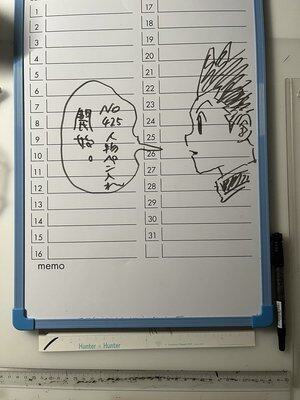 1
2
3
4
5
6
7
8
9
10
11
12
13
14
15
16
17
18
19
20
21
22
23
24
25
26
27
28
29
30
31
No 425 人物ペン入れ
開始。
memo
Hunter × Hunter